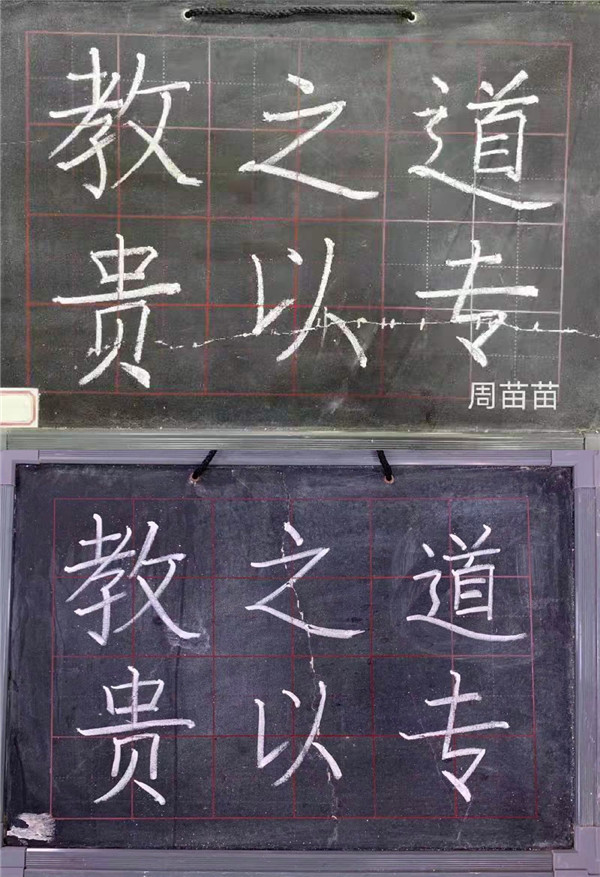 教之道
贵以专
周苗苗
教之道
贵以专